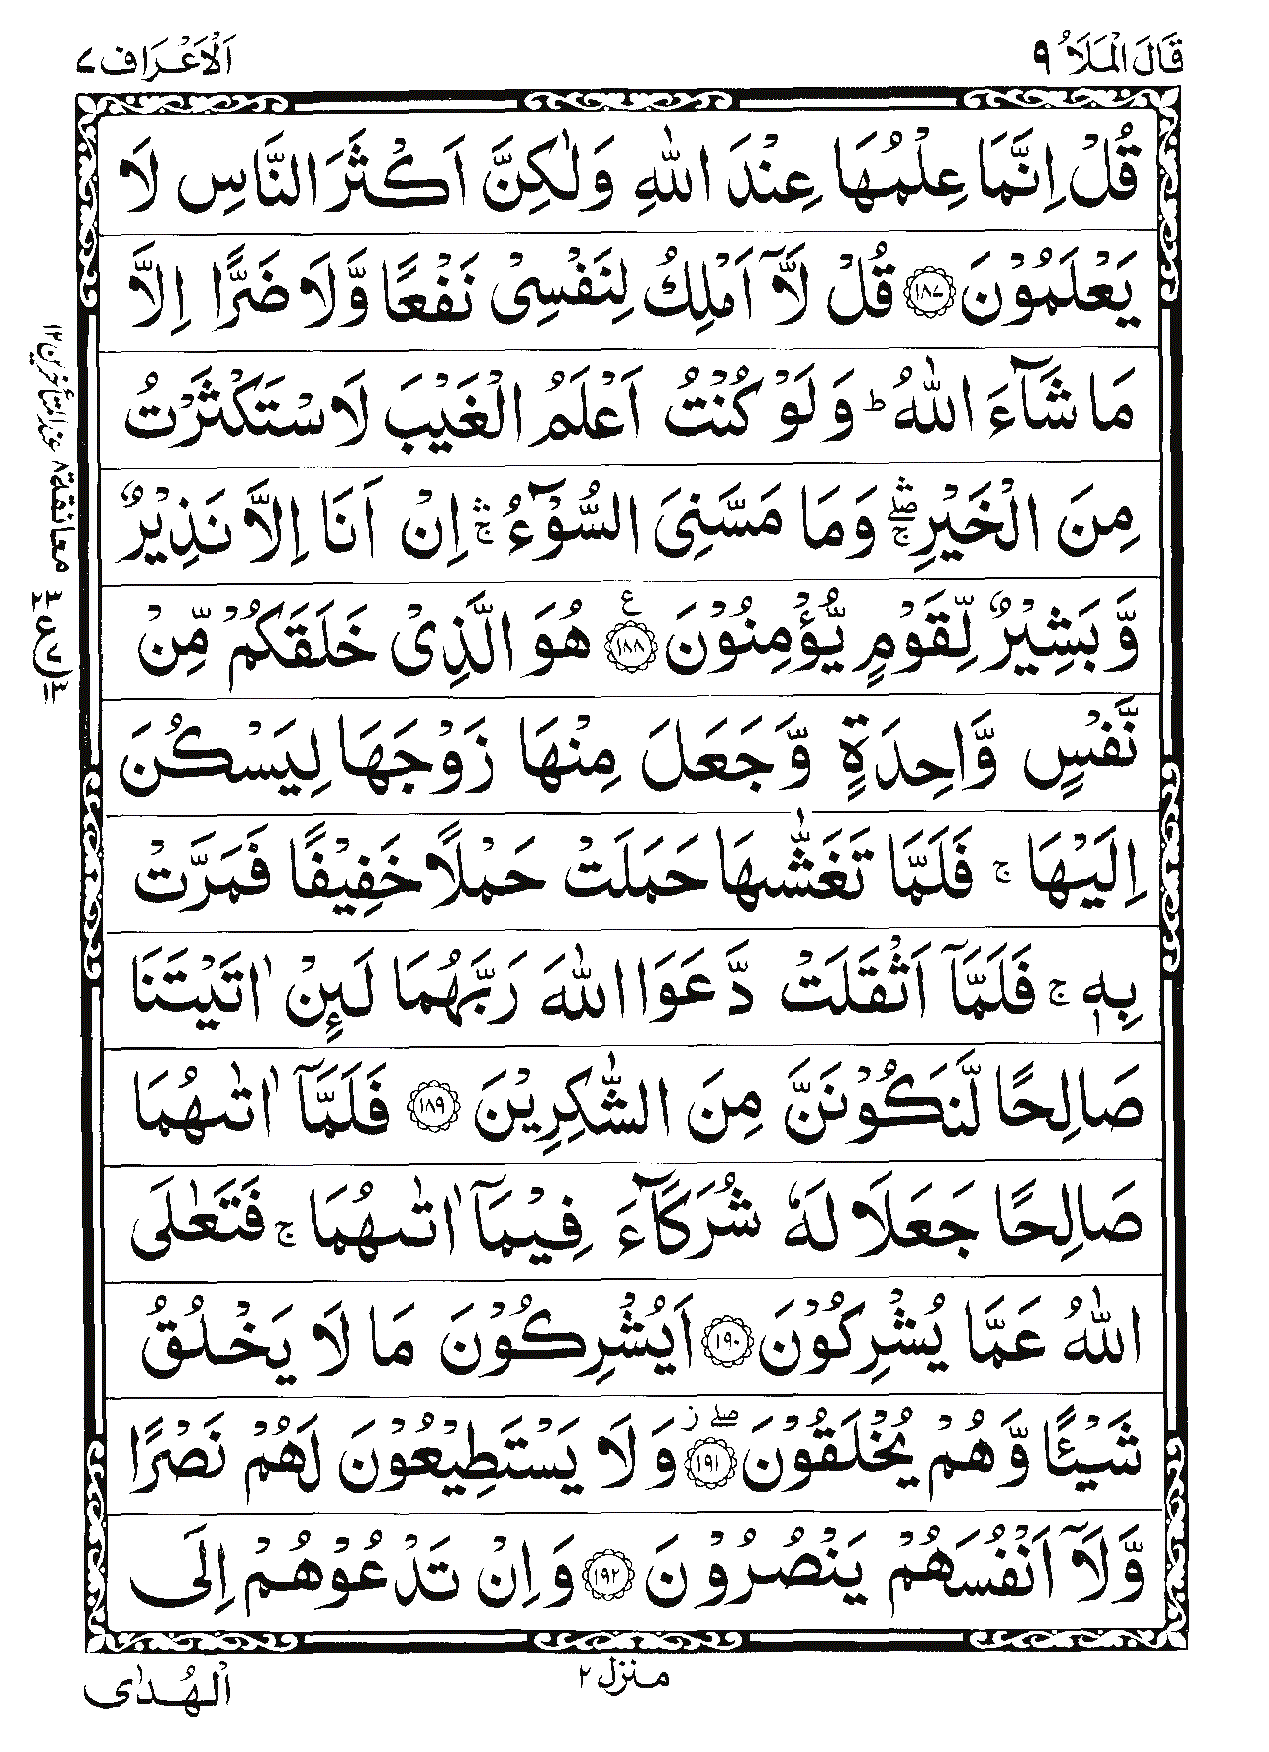 قَالَ الْمَلَاُ ٩
اَلْاَعْرَاف ٧
قُلْ اِنَّمَا عِلْمُهَا عِنْدَ اللّٰهِ وَلٰكِنَّ اَكْثَرَ النَّاسِ لَا
يَعْلَمُوْنَ ﴿١٨٧﴾ قُلْ لَّاۤ اَمْلِكُ لِنَفْسِىْ نَفْعًا وَّلَا ضَرًّا اِلَّا
مَا شَآءَ اللّٰهُ ؕ وَلَوْ كُنْتُ اَعْلَمُ الْغَيْبَ لَاسْتَكْثَرْتُ
مِنَ الْخَيْرِ ۛۖۚ وَمَا مَسَّنِىَ السُّوْٓءُ ۛۚ اِنْ اَنَا اِلَّا نَذِيْرٌ
وَّبَشِيْرٌ لِّقَوْمٍ يُّؤْمِنُوْنَ ﴿١٨٨﴾ ع هُوَ الَّذِىْ خَلَقَكُمْ مِّنْ
نَّفْسٍ وَّاحِدَةٍ وَّجَعَلَ مِنْهَا زَوْجَهَا لِيَسْكُنَ
اِلَيْهَا ۚ فَلَمَّا تَغَشّٰىهَا حَمَلَتْ حَمْلًا خَفِيْفًا فَمَرَّتْ
بِهٖ ۚ فَلَمَّاۤ اَثْقَلَتْ دَّعَوَا اللّٰهَ رَبَّهُمَا لَئِنْ اٰتَيْتَنَا
صَالِحًا لَّنَكُوْنَنَّ مِنَ الشّٰكِرِيْنَ ﴿١٨٩﴾ فَلَمَّاۤ اٰتٰىهُمَا
صَالِحًا جَعَلَا لَهٗ شُرَكَآءَ فِيْمَاۤ اٰتٰىهُمَا ۚ فَتَعٰلَى
اللّٰهُ عَمَّا يُشْرِكُوْنَ ﴿١٩٠﴾ اَيُشْرِكُوْنَ مَا لَا يَخْلُقُ
شَيْـًٔا وَّهُمْ يُخْلَقُوْنَ ﴿١٩١﴾ ۖز وَلَا يَسْتَطِيْعُوْنَ لَهُمْ نَصْرًا
وَّلَاۤ اَنْفُسَهُمْ يَنْصُرُوْنَ ﴿١٩٢﴾ وَاِنْ تَدْعُوْهُمْ اِلَى
معانقة ٨ عند المتأخرين ١٢
ع
منزل ٢
الْهُدٰى